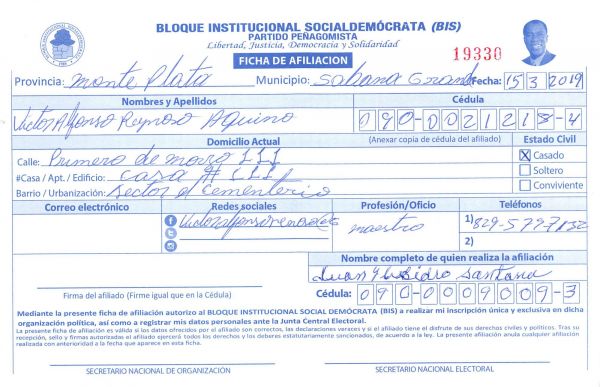 BLOQUE INSTITUCIONAL SOCIALDEMÓCRATA (BIS)
PARTIDO PEÑAGOMISTA
Libertad, Justicia, Democracia y Solidaridad
FICHA DE AFILIACION
19330
Provincia: Monte Plata Municipio: Sabana Grand Fecha: 15 3 2019
Nombres y Apellidos Cédula
Victor Alfonso Reynoso Aquino 090-0021218-4
Domicilio Actual (Anexar copia de cédula del afiliado) Estado Civil
Calle: Primero de
#Casa / Apt. / Edificio: casa #
Barrio / Urbanización: Sector el Cementerio
X Casado
Soltero
Conviviente
Correo electrónico Redes sociales Profesión/Oficio Teléfonos
maestro
1) 829-579-7132
2)
Nombre completo de quien realiza la afiliación
Juan Ysidro Santana
Cédula: 090-0009009-3
Firma del afiliado (Firme igual que en la Cédula)
Mediante la presente ficha de afiliación autorizo al BLOQUE INSTITUCIONAL SOCIAL DEMÓCRATA (BIS) a realizar mi inscripción única y exclusiva en dicha
organización política, así como a registrar mis datos personales ante la Junta Central Electoral.
La presente ficha de afiliación es válida si los datos ofrecidos por el afiliado son correctos, las declaraciones veraces y si el afiliado tiene el disfrute de sus derechos civiles y políticos. Tras su
recepción, sello y firmas autorizadas el afiliado ejercerá todos los derechos y los deberes estatutariamente sancionados, de acuerdo a la ley. La presente afiliación anula cualquier afiliación
realizada con anterioridad a la fecha que aparece en esta ficha.
SECRETARIO NACIONAL DE ORGANIZACIÓN SECRETARIO NACIONAL ELECTORAL